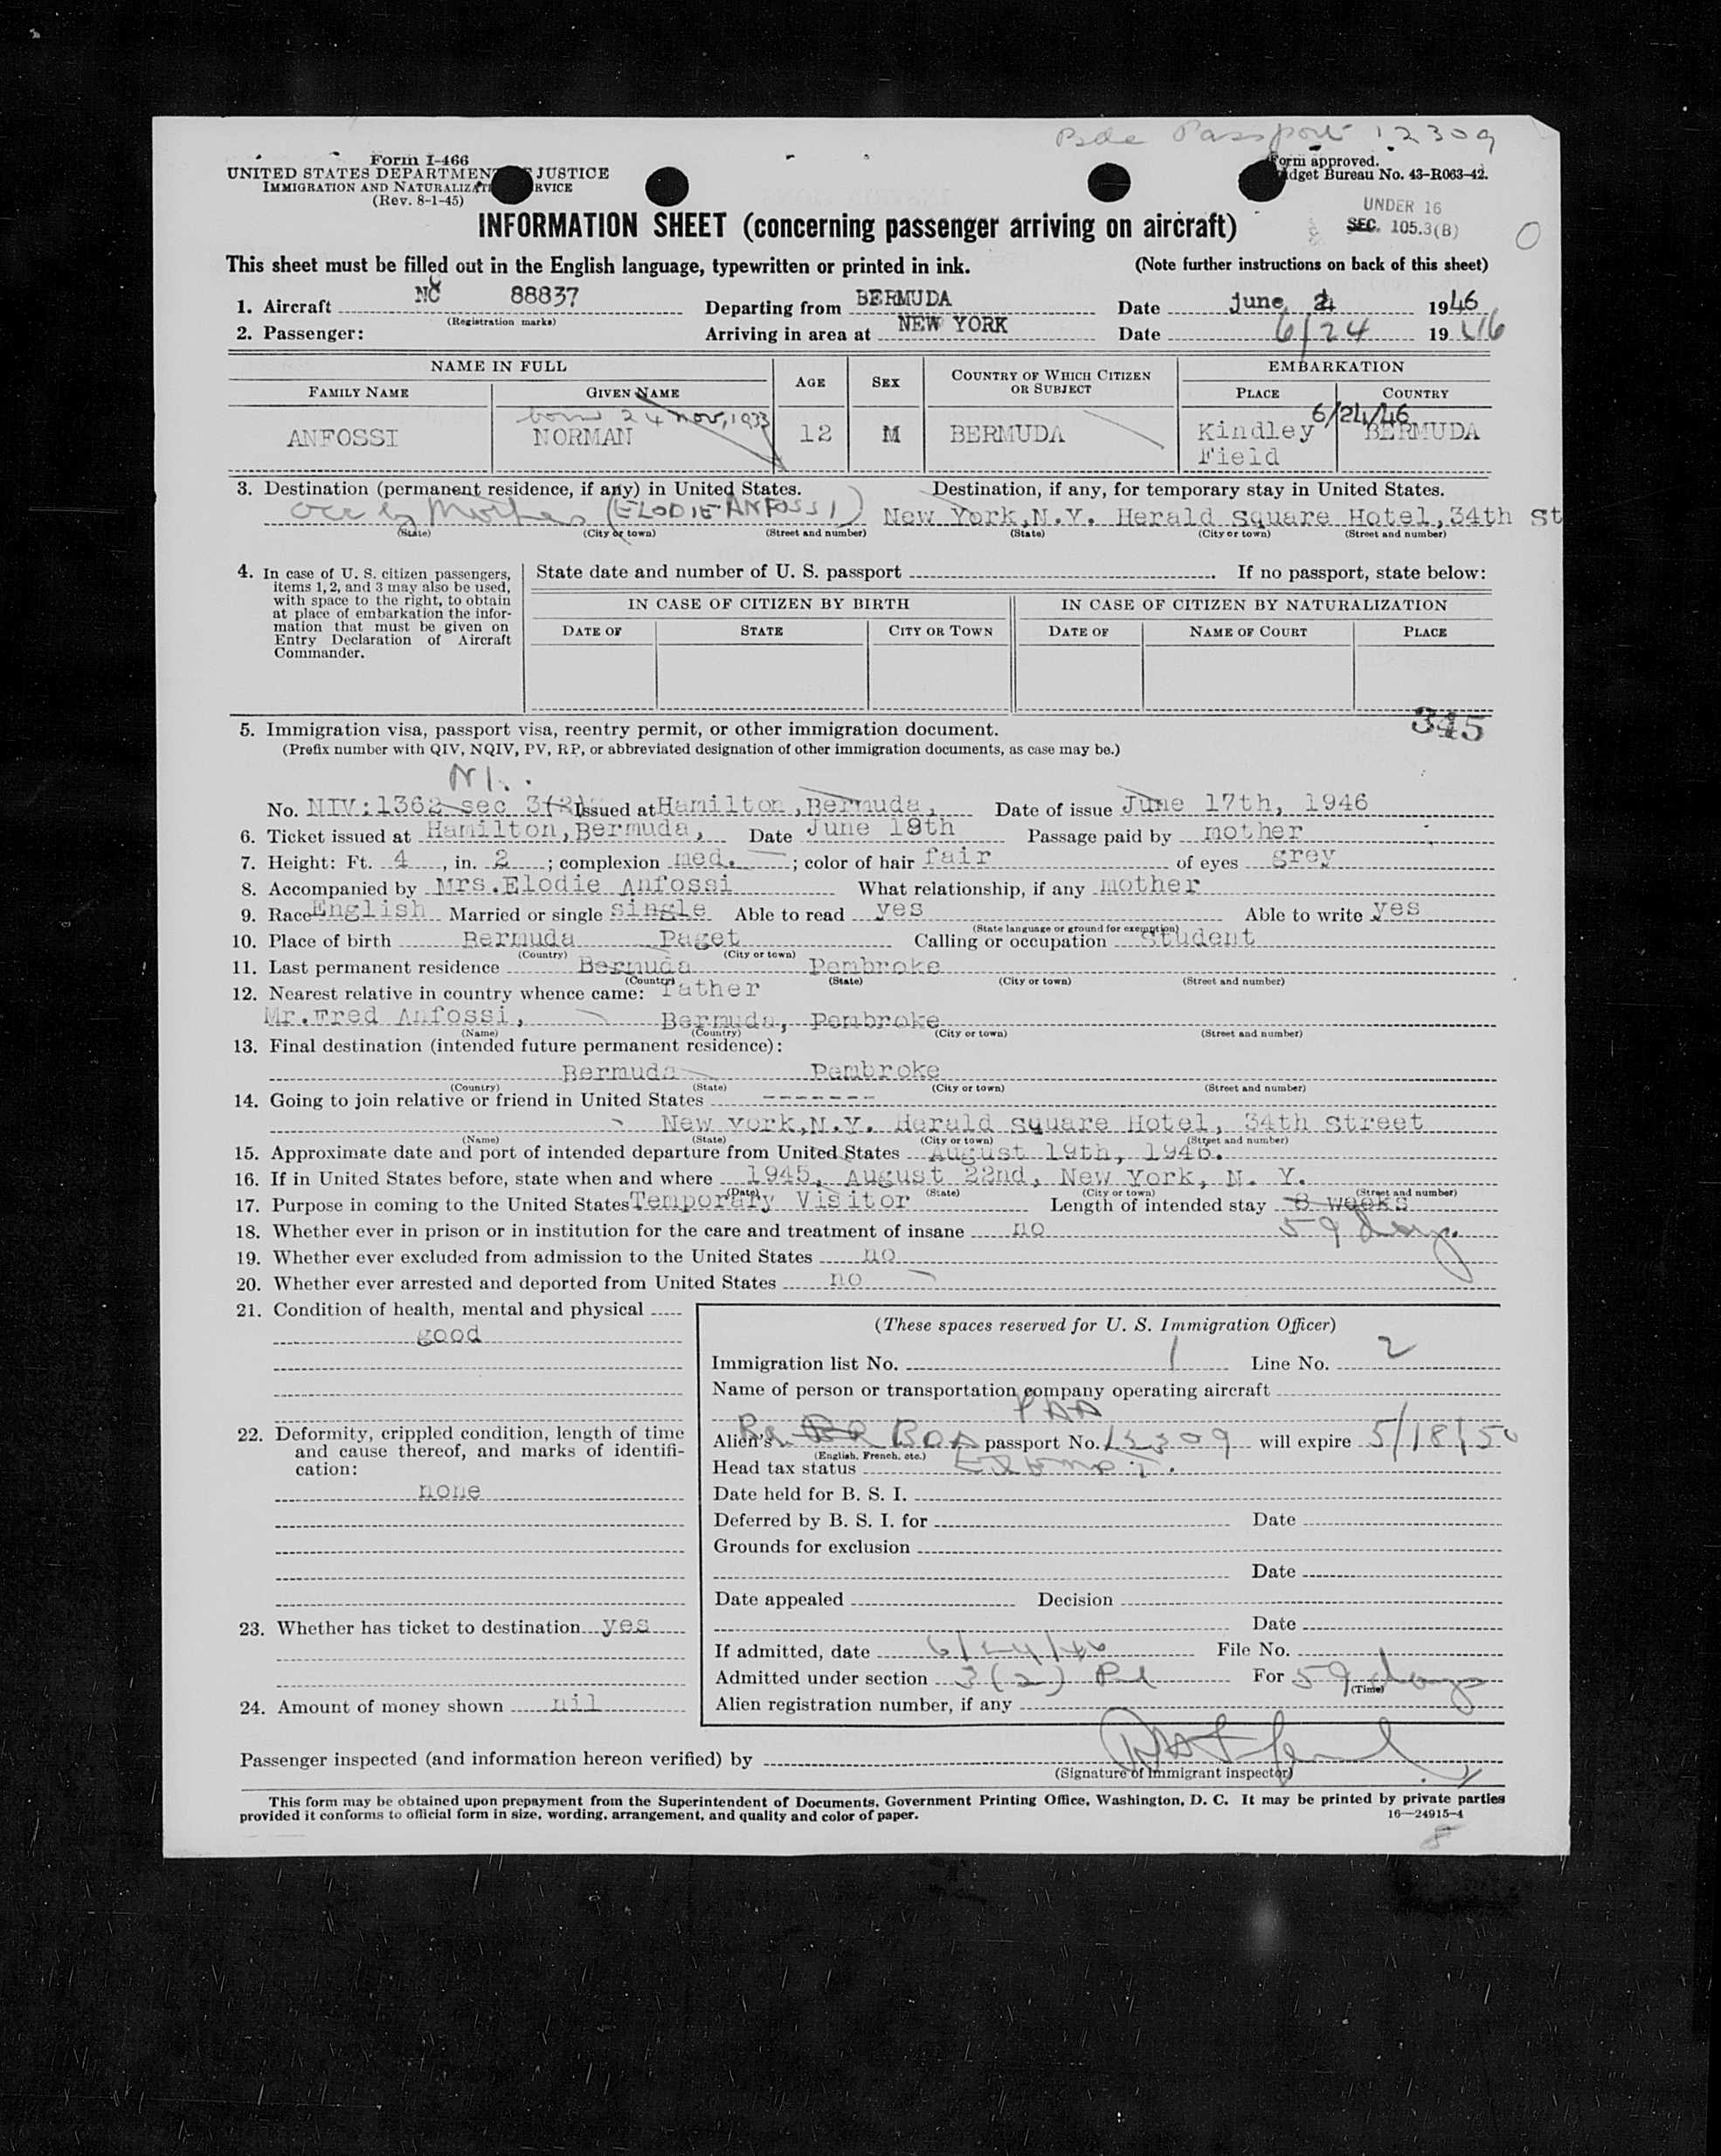 Bda Passport 12309
Form I-466
UNITED STATES DEPARTMENT JUSTICE
IMMIGRATION AND NATURALIZATI RVICE
(Rev. 8-1-45)
Form approved.
dget Bureau No. 43-R063-42.
UNDER 16
SEC. 105.3(B)
INFORMATION SHEET (concerning passenger arriving on aircraft)
This sheet must be filled out in the English language, typewritten or printed in ink. (Note further instructions on back of this sheet)
1. Aircraft NC 88837 Departing from BERMUDA Date june 1946
(Registration marks)
2. Passenger: Arriving in area at NEW YORK Date 6/24 1946
NAME IN FULL AGE SEX COUNTRY OF WHICH CITIZEN OR SUBJECT EMBARKATION
FAMILY NAME GIVEN NAME PLACE COUNTRY
born 24 Nov, 1933 6/24/46
ANFOSSI NORMAN 12 M BERMUDA Kindley BERMUDA
Field
3. Destination (permanent residence, if any) in United States. Destination, if any, for temporary stay in United States.
acc by Mother (ELODIE ANFOSSI) New York,N.Y. Herald Square Hotel,34th St
(State) (City or town) (Street and number) (State) (City or town) (Street and number)
4. In case of U. S. citizen passengers, items 1, 2, and 3 may also be used, with space to the right, to obtain at place of embarkation the information that must be given on Entry Declaration of Aircraft Commander.
State date and number of U. S. passport . If no passport, state below:
IN CASE OF CITIZEN BY BIRTH IN CASE OF CITIZEN BY NATURALIZATION
DATE OF STATE CITY OR TOWN DATE OF NAME OF COURT PLACE
345
5. Immigration visa, passport visa, reentry permit, or other immigration document.
(Prefix number with QIV, NQIV, PV, RP, or abbreviated designation of other immigration documents, as case may be.)
No. NIV:1362 sec 3(2) Issued at Hamilton,Bermuda, Date of issue June 17th, 1946
6. Ticket issued at Hamilton,Bermuda, Date June 19th Passage paid by mother
7. Height: Ft. 4, in. 2; complexion med.; color of hair fair of eyes grey
8. Accompanied by Mrs.Elodie Anfossi What relationship, if any mother
9. Race English Married or single single Able to read yes Able to write yes
(State language or ground for exemption)
10. Place of birth Bermuda Paget Calling or occupation Student
(Country) (City or town)
11. Last permanent residence Bermuda Pembroke
(Country) (State) (City or town) (Street and number)
12. Nearest relative in country whence came: father
Mr.Fred Anfossi, Bermuda, Pembroke
(Name) (Country) (City or town) (Street and number)
13. Final destination (intended future permanent residence):
Bermuda Pembroke
(Country) (State) (City or town) (Street and number)
14. Going to join relative or friend in United States -------
New york,N.Y. Herald square Hotel, 34th Street
(Name) (State) (City or town) (Street and number)
15. Approximate date and port of intended departure from United States August 19th, 1946.
16. If in United States before, state when and where 1945, August 22nd, New York, N. Y.
(Date) (State) (City or town) (Street and number)
17. Purpose in coming to the United States Temporary Visitor Length of intended stay 8 weeks
59 days.
18. Whether ever in prison or in institution for the care and treatment of insane no
19. Whether ever excluded from admission to the United States no
20. Whether ever arrested and deported from United States no
21. Condition of health, mental and physical
good
22. Deformity, crippled condition, length of time and cause thereof, and marks of identification:
none
23. Whether has ticket to destination yes
24. Amount of money shown nil
(These spaces reserved for U. S. Immigration Officer)
Immigration list No. 1 Line No. 2
Name of person or transportation company operating aircraft
PAA
Alien's BDA passport No. 12309 will expire 5/18/50
(English, French, etc.)
Head tax status Exempt.
Date held for B. S. I.
Deferred by B. S. I. for Date
Grounds for exclusion
Date
Date appealed Decision
Date
If admitted, date 6/24/46 File No.
Admitted under section 3(2) Pd For 59 days
(Time)
Alien registration number, if any
Passenger inspected (and information hereon verified) by
(Signature of Immigrant inspector)
This form may be obtained upon prepayment from the Superintendent of Documents, Government Printing Office, Washington, D. C. It may be printed by private parties
provided it conforms to official form in size, wording, arrangement, and quality and color of paper. 16—24915-4
8